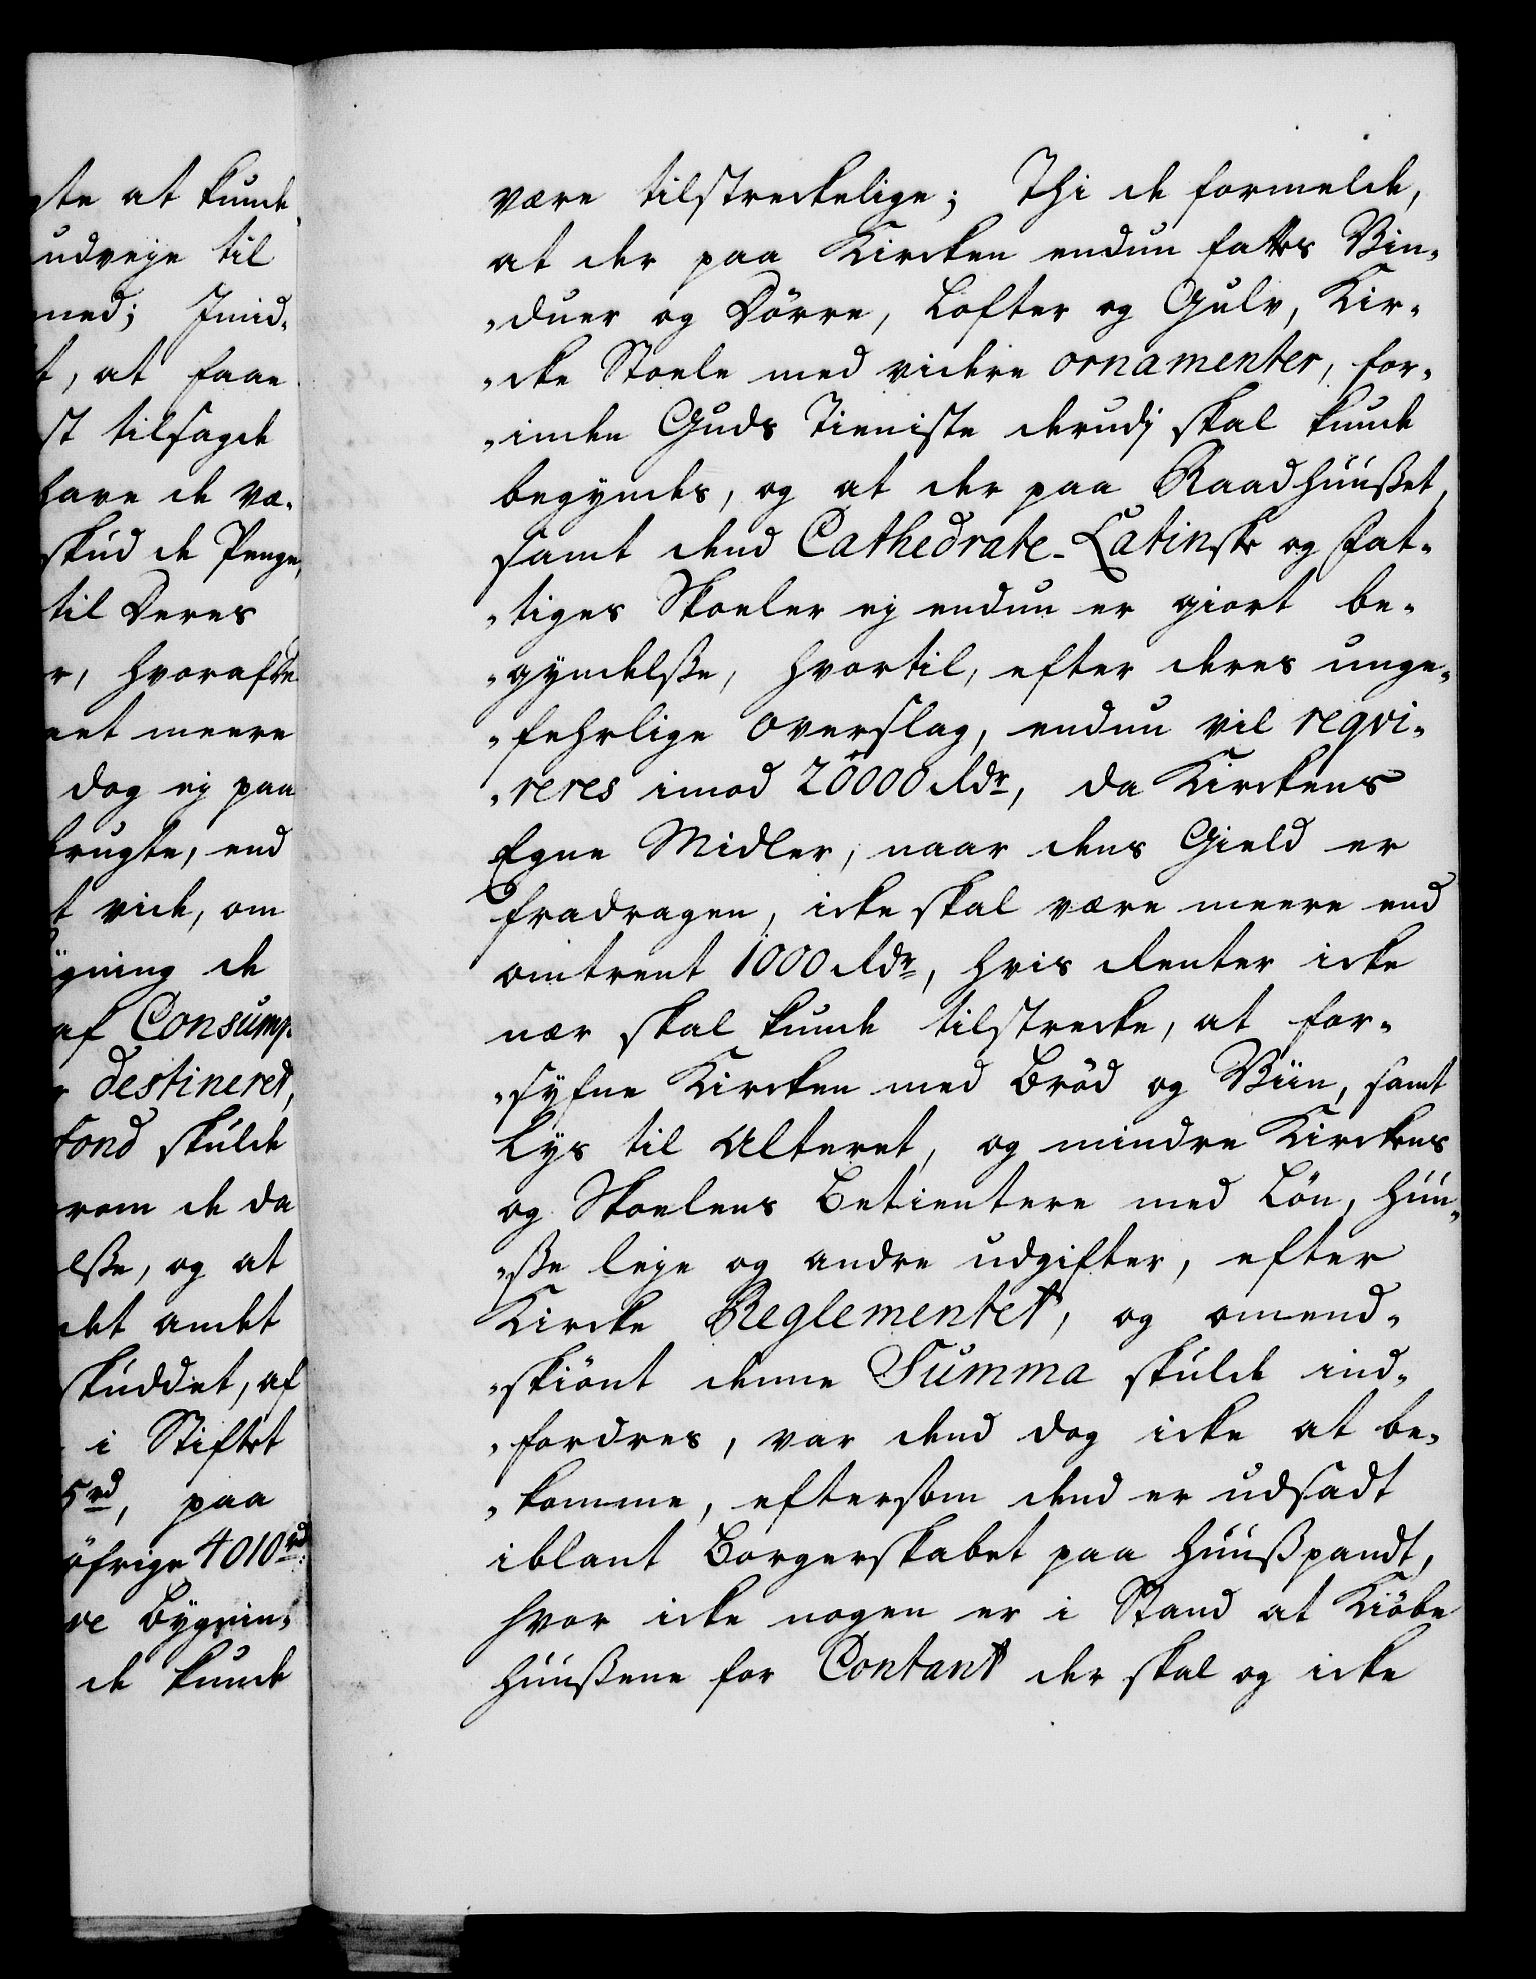 gte at kunde
udveye til
med; Imid-
t, at faae
st tilsagde
have de væ-
skud de Penge,
til Deres
r, hvorafde
et meere
dog ej paa
brugte, end
t vide, om
ygning de
af Consump-
destineret,
Fond skulde
rom de da
lße, og at
det andet
skuddet, af
i Stiftet
5 rd, paa
öfrige 4010 rd:
ve Bygnin-
de kunde
være tilstreckelige; Thi de formelde,
at der paa Kircken endnu fattes Vin-
-duer og Dörre, Lofter og Gulv, Kir-
-cke Stoele med videre ornamenter, for-
-inden Guds Tieniste derudj skal kunde
begyndes, og at der paa Raadhuußet,
samt dend Cathedrale-Latinske og Fat-
-tiges Skoeler ej endnu er giort be-
-gyndelße, hvortil, efter deres unge-
-fehrlige Overslag, endnu vil reqvi-
-reres imod 20000 Rdr, da Kirckens
Egne Midler, naar dens Gield er
fradragen, icke skal være meere end
omtrent 1000 Rdr, hvis Renter icke
nær skal kunde tilstrecke, at for-
-syfne Kircken med Bröd og Viin, samt
Lys til Alteret, og mindre Kirckens
og Skoelens Betientere med Lön, Huu-
-ße leye og andre udgifter, efter
Kircke Reglementet, og omend-
-skiönt denne Summa skulde ind-
-fordres, var dend dog icke at be-
-komme, eftersom dend er udsadt
iblant Borgerskabet paa Huußpandt,
hvor icke nogen er i Stand at Kiöbe
Huußene for Contant der skal og icke